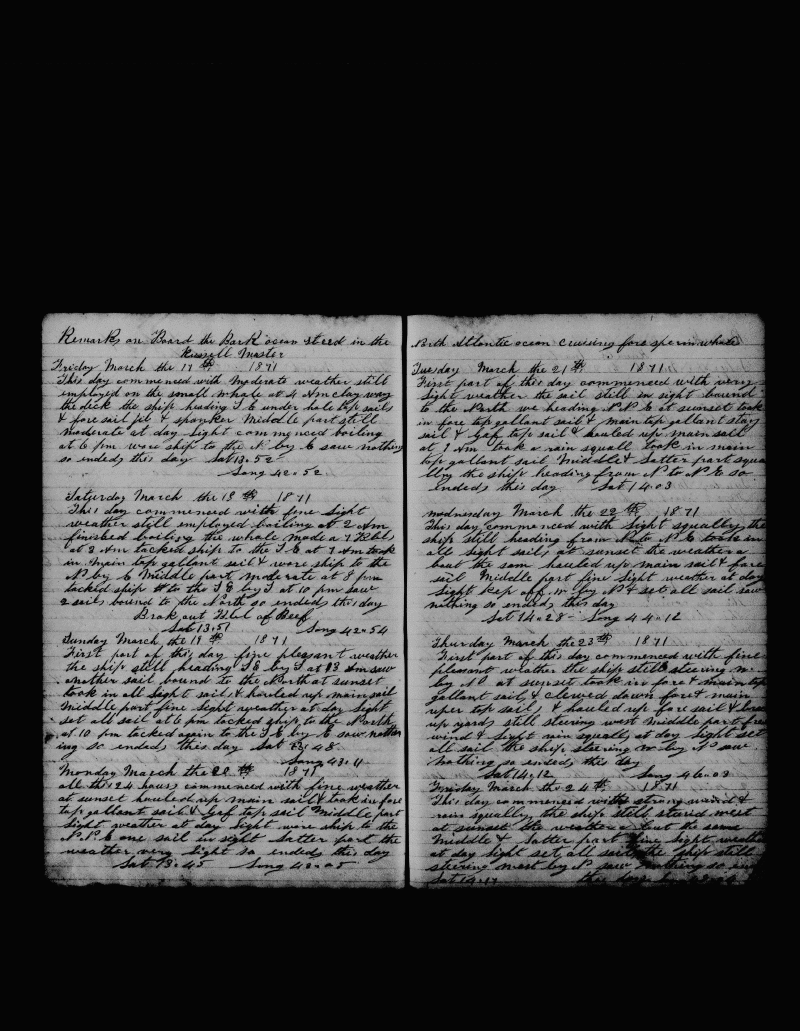 Remarks on Board the Bark ocean steed in the
Russell Master
Friday March the 17th 1871
This day commenced with Moderate weather still
employed on the small whale at 4 Am clay way
the deck the ship heading S E under hole top sails
& fore sail jib & spanker Middle part still
moderate at day light commenced boiling
at 6 pm wore ship to the N by E saw nothing
so ended this day Lat 13.52
Long 42.52
Saturday March the 18th 1871
This day commenced with fine light
weather still employed boiling at 2 Am
finished boiling the whale made 27 Bbls
at 2 Am tacked ship to the S E at 7 Am took
in Main top gallant sail & wore ship to the
N by E Middle part moderate at 8 pm
tacked ship to the S E by S at 10 pm saw
2 sails bound to the North so ended this day
Brok out Bbl of Beef
Lat 13.51 Long 42=54
Sunday March the 19th 1871
First part of this day fine pleasant weather
the ship still heading S E by S at Am saw
another sail bound to the North at sunset
took in all light sails & hauled up main sail
Middle part fine light weather at day light
set all sail at 6 pm tacked ship to the North
at 10 pm tacked again to the S E by E saw noth
ing so ended this day Lat 48
Long 43.11
Monday March the 20th 1871
all this 24 hours commenced with fine weather
at sunset hauled up main sail & took in fore
top gallant sail & gaf top sail Middle part
light weather at day light wore ship to the
N N E one sail in sight Latter part the
weather very light so ended this day
Lat 13.45 Long 43=05
North Atlantic ocean cruising fore sperm whales
Tuesday March the 21th 1871
First part of this day commenced with very
light weather the sail still in sight bound
to the North we heading N N E at sunset took
in fore top gallant sail & main top gallant stay
sail & gaf top sail & hauled up main sail
at 7 Am took a rain squall took in main
top gallant sail Middle & Latter part squa
lly the ship heading from N to N E so
ended this day Lat 14.03
Wednesday March the 22th 1871
This day commenced with light squally the
ship still heading from N to N E took in
all light sail at sunset the weather a
bout the same hauled up main sail & fore
sail Middle part fine light weather at day
light keep off W by N & set all sail saw
nothing so ended this day
Lat 14=28 Long 44.12
Thursday March the 23th 1871
First part of this day commenced with fine
pleasant weather the ship still steering W
by N at sunset took in fore & main top
gallant sail & clewed down fore & main
uper top sails & hauled up fore sail &
up yards still steering west Middle part free
wind & light rain squally at day light set
all sail the ship steering W by N saw
nothing so ended this day
Lat 14.12 Long 46=03
Friday March the 24th 1871
This day commenced with strong wind &
rain squally the ship still stering west
at sunset the weather about the same
Middle & Latter part fine light weather
at day light set all sail the ship still
steering west by N saw nothing so
Lat 14.17 this day